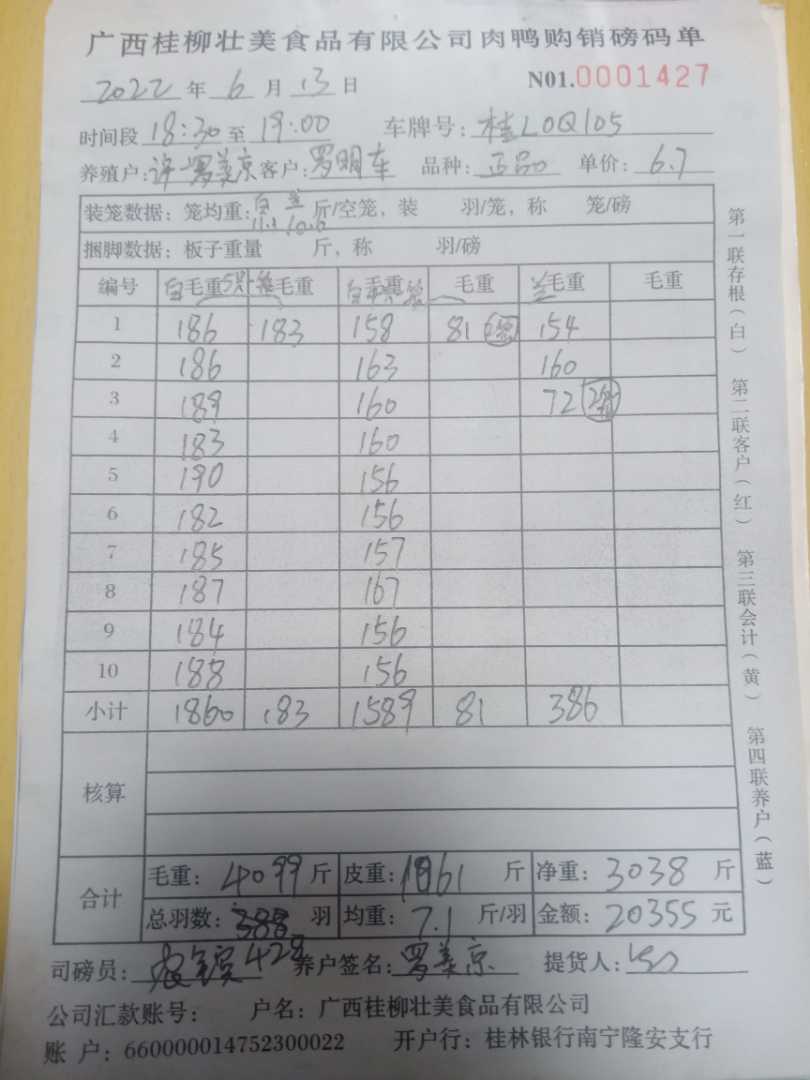 广西桂柳壮美食品有限公司肉鸭购销磅码单
2022年6月13日 N01.0001427
时间段18:30至19:00 车牌号:桂L0Q105
养殖户:许 罗美京 客户:罗明车 品种:正品 单价:6.7
装笼数据:笼均重:白 兰 斤/空笼,装 羽/笼,称 笼/磅
11.1 10.6
捆脚数据:板子重量 斤,称 羽/磅
编号 白毛重 5只 毛重 白毛重 毛重 兰毛重 毛重
1 186 183 158 81 154
2 186 163 160
3 189 160 72 2笼
4 183 160
5 190 156
6 182 156
7 185 157
8 187 167
9 184 156
10 188 156
小计 1860 183 1589 81 386
核算
合计 毛重:4099斤 皮重:1061斤 净重:3038斤
总羽数:388羽 均重:7.1斤/羽 金额:20355元
428
司磅员: 养户签名:罗美京 提货人:
公司汇款账号: 户名:广西桂柳壮美食品有限公司
账 户:660000014752300022 开户行:桂林银行南宁隆安支行
第一联存根(白) 第二联客户(红) 第三联会计(黄) 第四联养户(蓝)